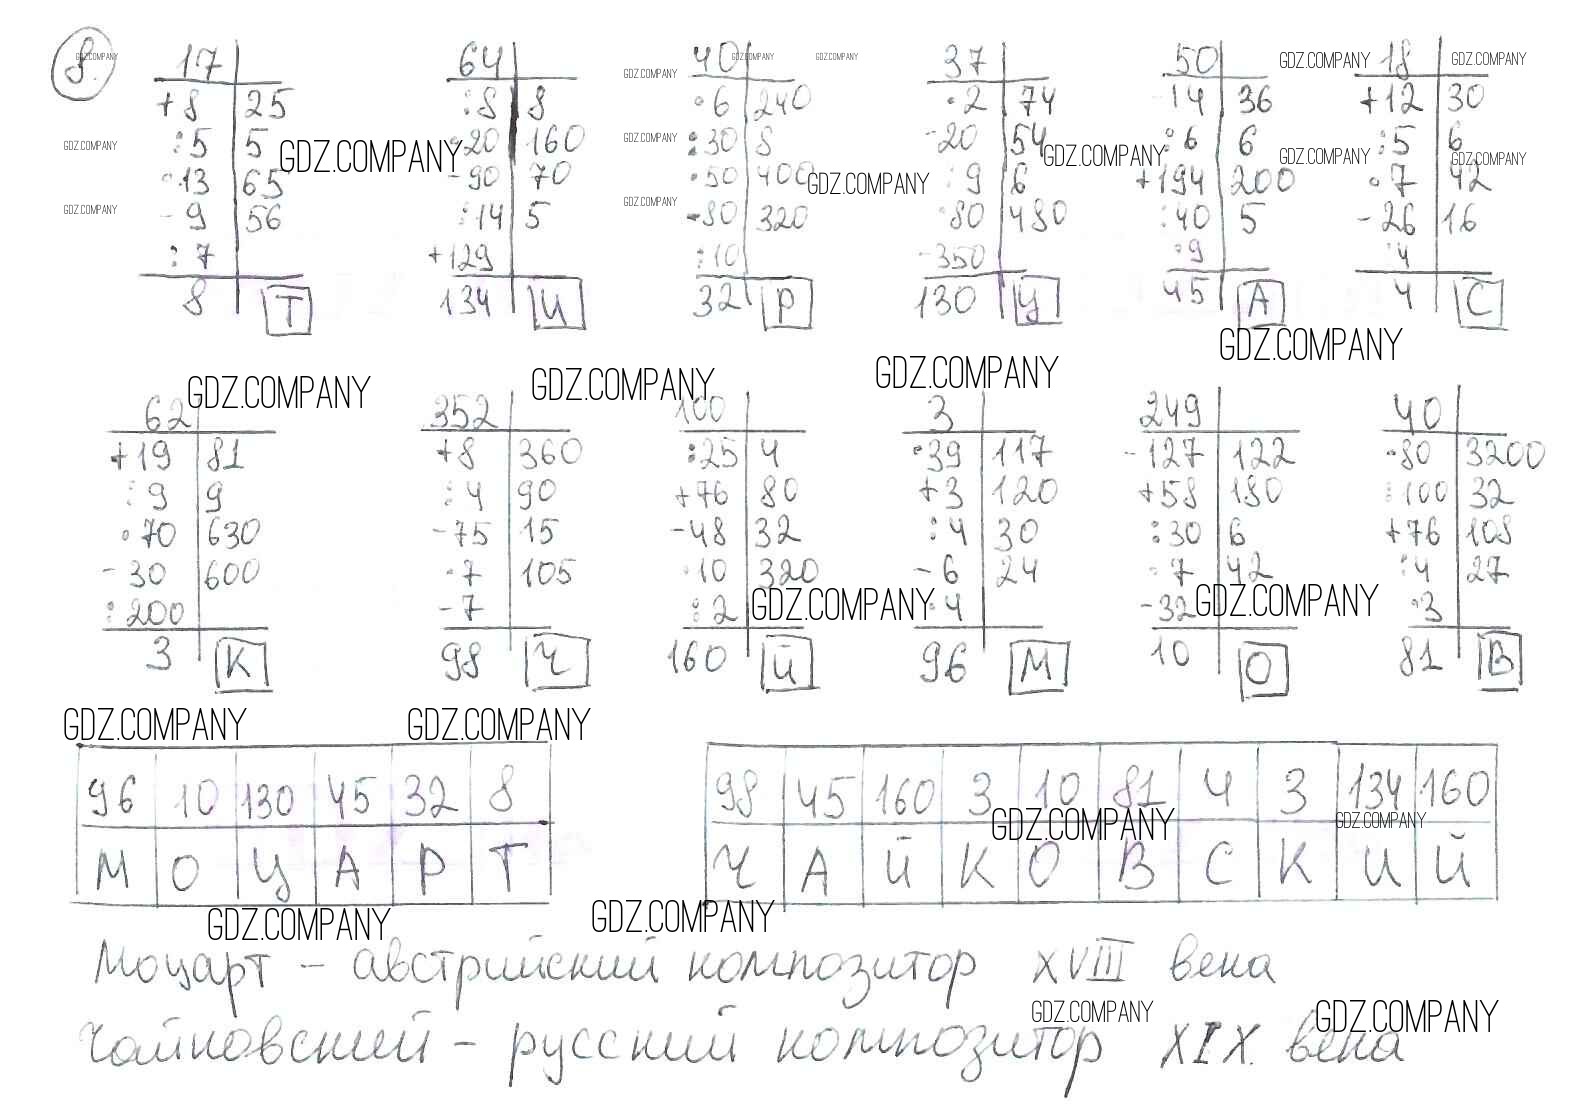 8.
17 64 40 37 50 18
+8 25 :8 8 ·6 240 ·2 74 -14 36 +12 30
:5 5 ·20 160 :30 8 -20 54 :6 6 :5 6
·13 65 -90 70 ·50 400 :9 6 +194 200 ·7 42
-9 56 :14 5 -80 320 ·80 480 :40 5 -26 16
:7 +129 :10 -350 ·9 :4
8 Т 134 И 32 Р 130 Ц 45 А 4 С
62 352 100 3 249 40
+19 81 +8 360 :25 4 ·39 117 -127 122 ·80 3200
:9 9 :4 90 +76 80 +3 120 +58 180 :100 32
·70 630 -75 15 -48 32 :4 30 :30 6 +76 108
-30 600 ·7 105 ·10 320 -6 24 ·7 42 :4 27
:200 -7 :2 ·4 -32 ·3
3 К 98 Ч 160 Й 96 М 10 О 81 В
96 10 130 45 32 8 98 45 160 3 10 81 4 3 134 160
М О Ц А Р Т Ч А Й К О В С К И Й
Моцарт - австрийский композитор XVIII века
Чайковский - русский композитор XIX века
GDZ.COMPANY